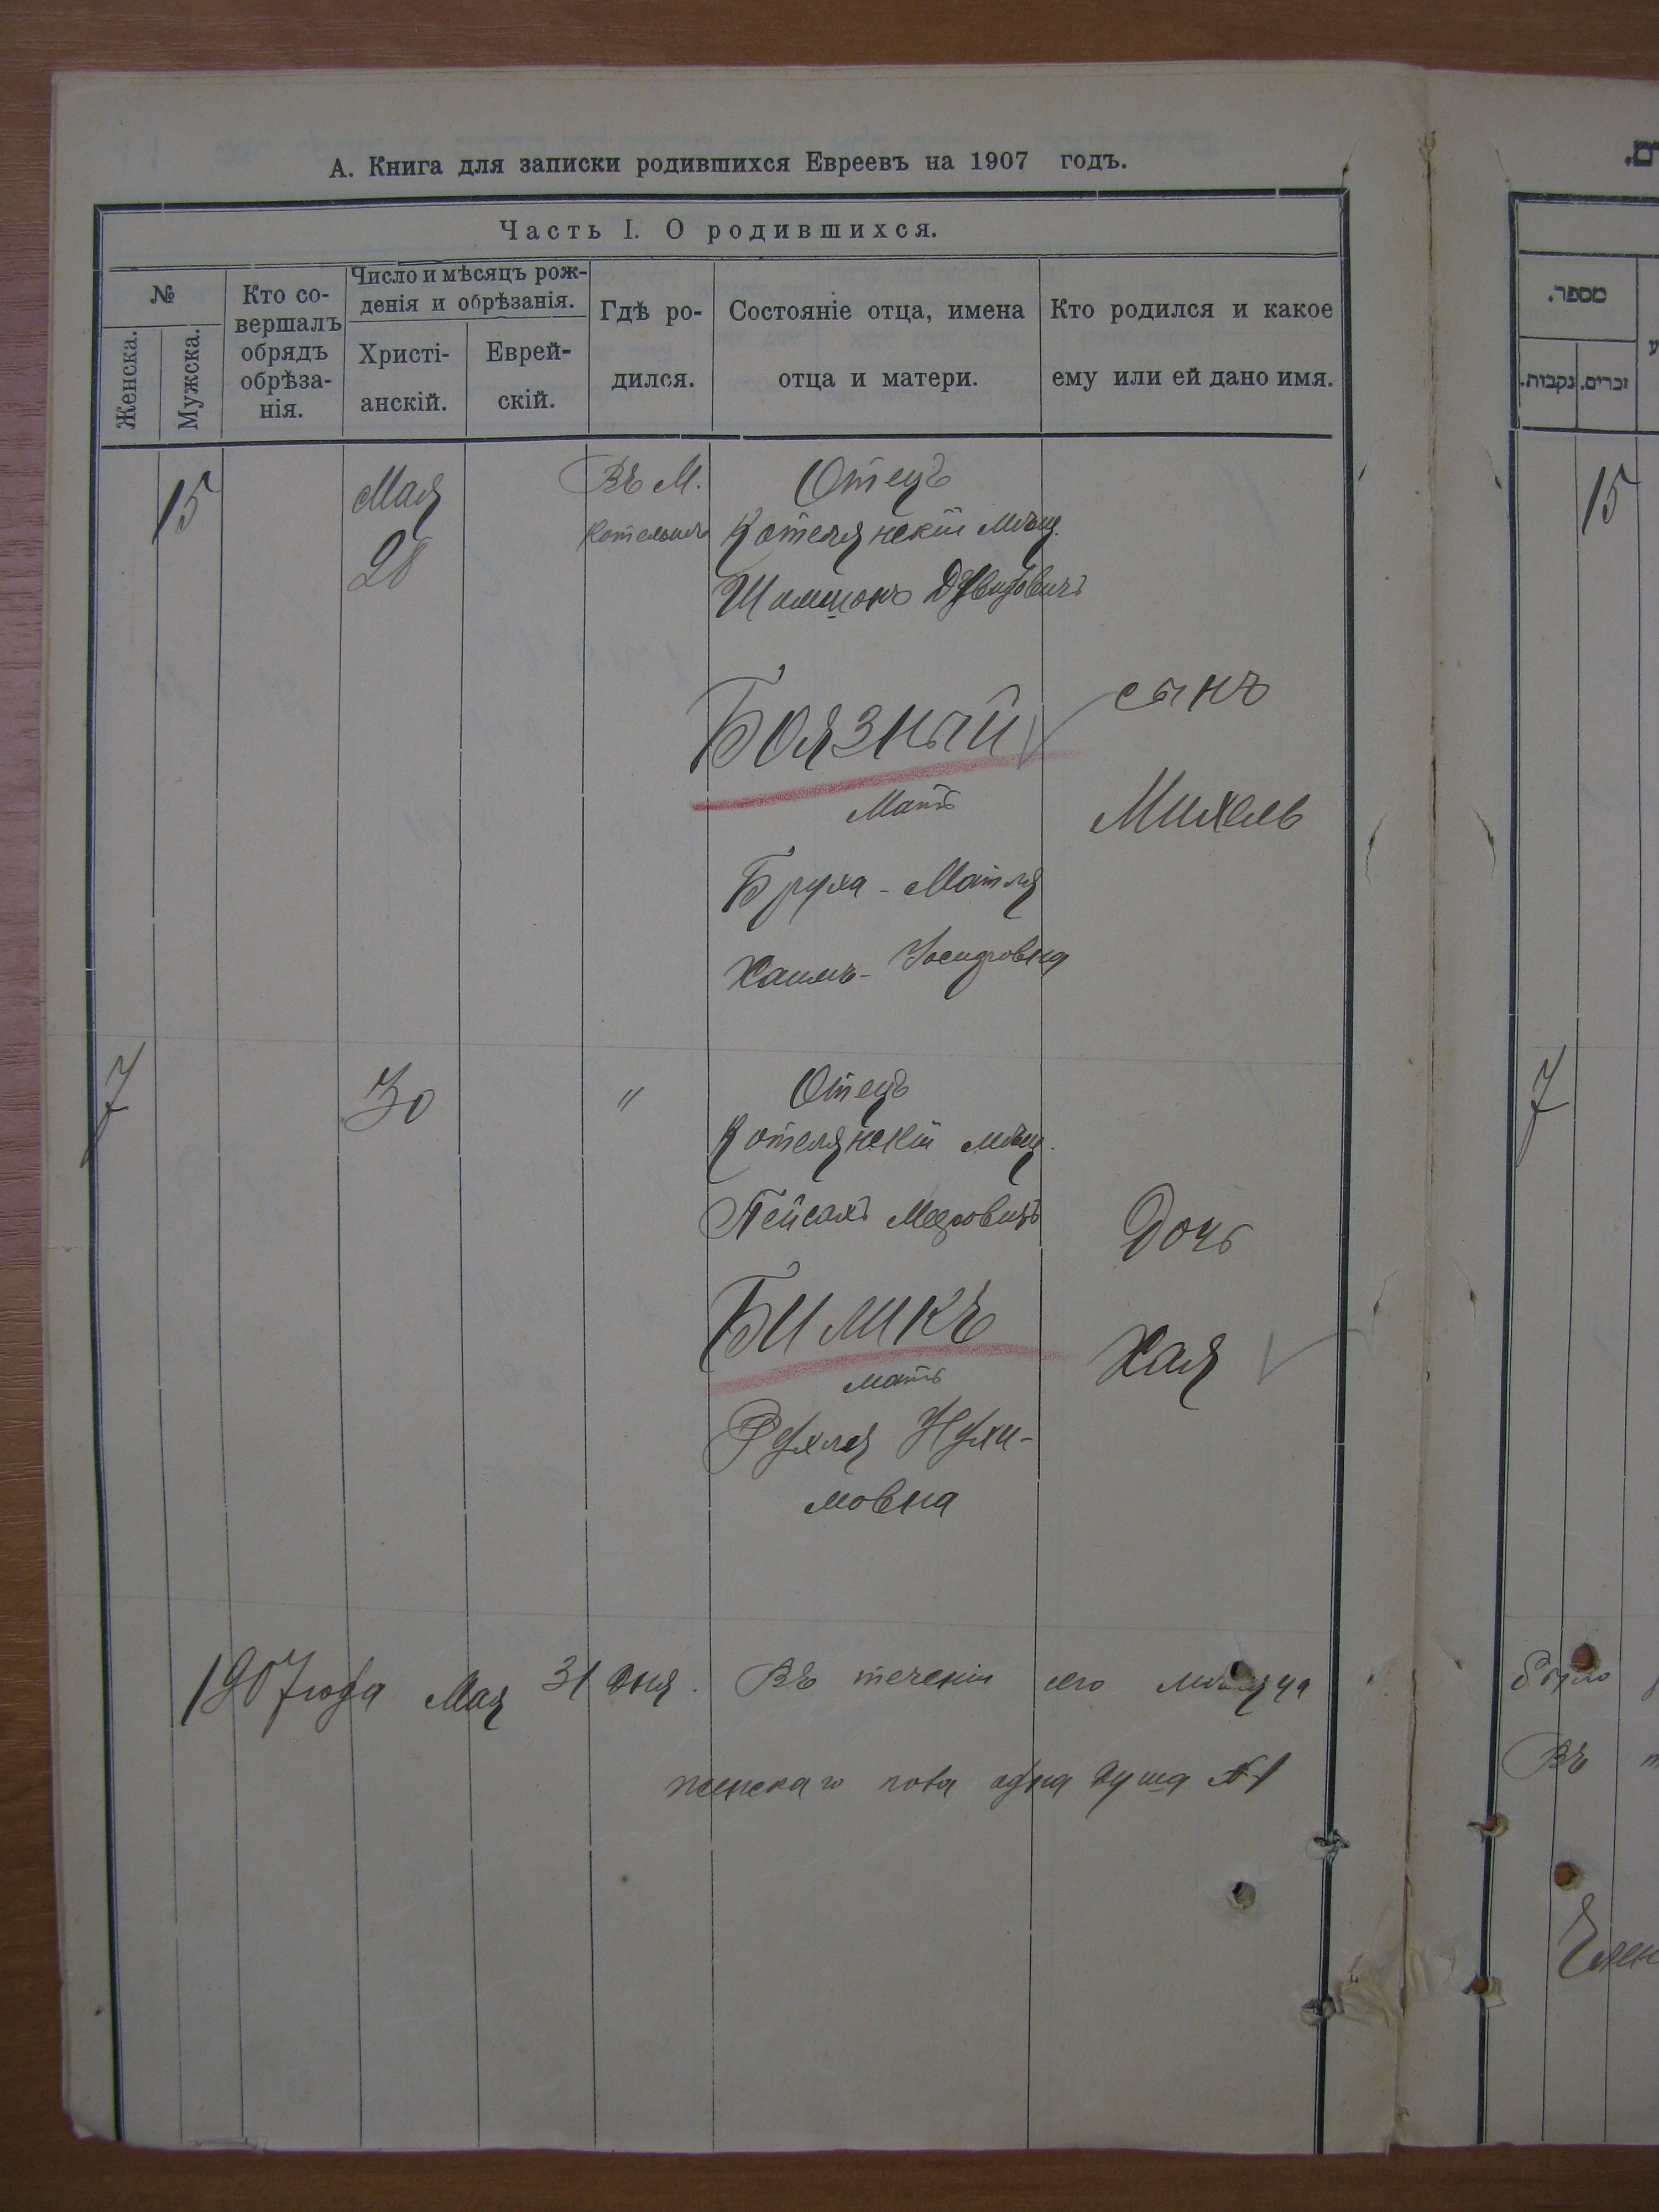 А. Книга для записки родившихся Евреевъ на 1907 годъ.
Часть I. О родившихся.
№
Женска.
Мужска.
Кто со-
вершалъ
обрядъ
обрѣза-
нія.
Число и мѣсяцъ рож-
денія и обрѣзанія.
Христі-
анскій.
Еврей-
скій.
Гдѣ ро-
дился.
Состояніе отца, имена
отца и матери.
Кто родился и какое
ему или ей дано имя.
15
Мая
28
Въ М.
Отецъ
Котелянскій мѣщ.
Шамшонъ Дувидовичъ
Боязный
Мать
Бруха-Матля
Хаимъ-Іосифовна
сынъ
Михель
7
30
"
Отецъ
Котелянскій мѣщ.
Пейсахъ Мееровичъ
Бимикъ
мать
Рухля Нухи-
мовна
Дочь
Хая
1907 года Мая 31 дня. Въ теченіи сего мѣсяца
женскаго пола одна душа №1
מספר.
נקבות.
זכרים.
15
7
было
Въ
Член